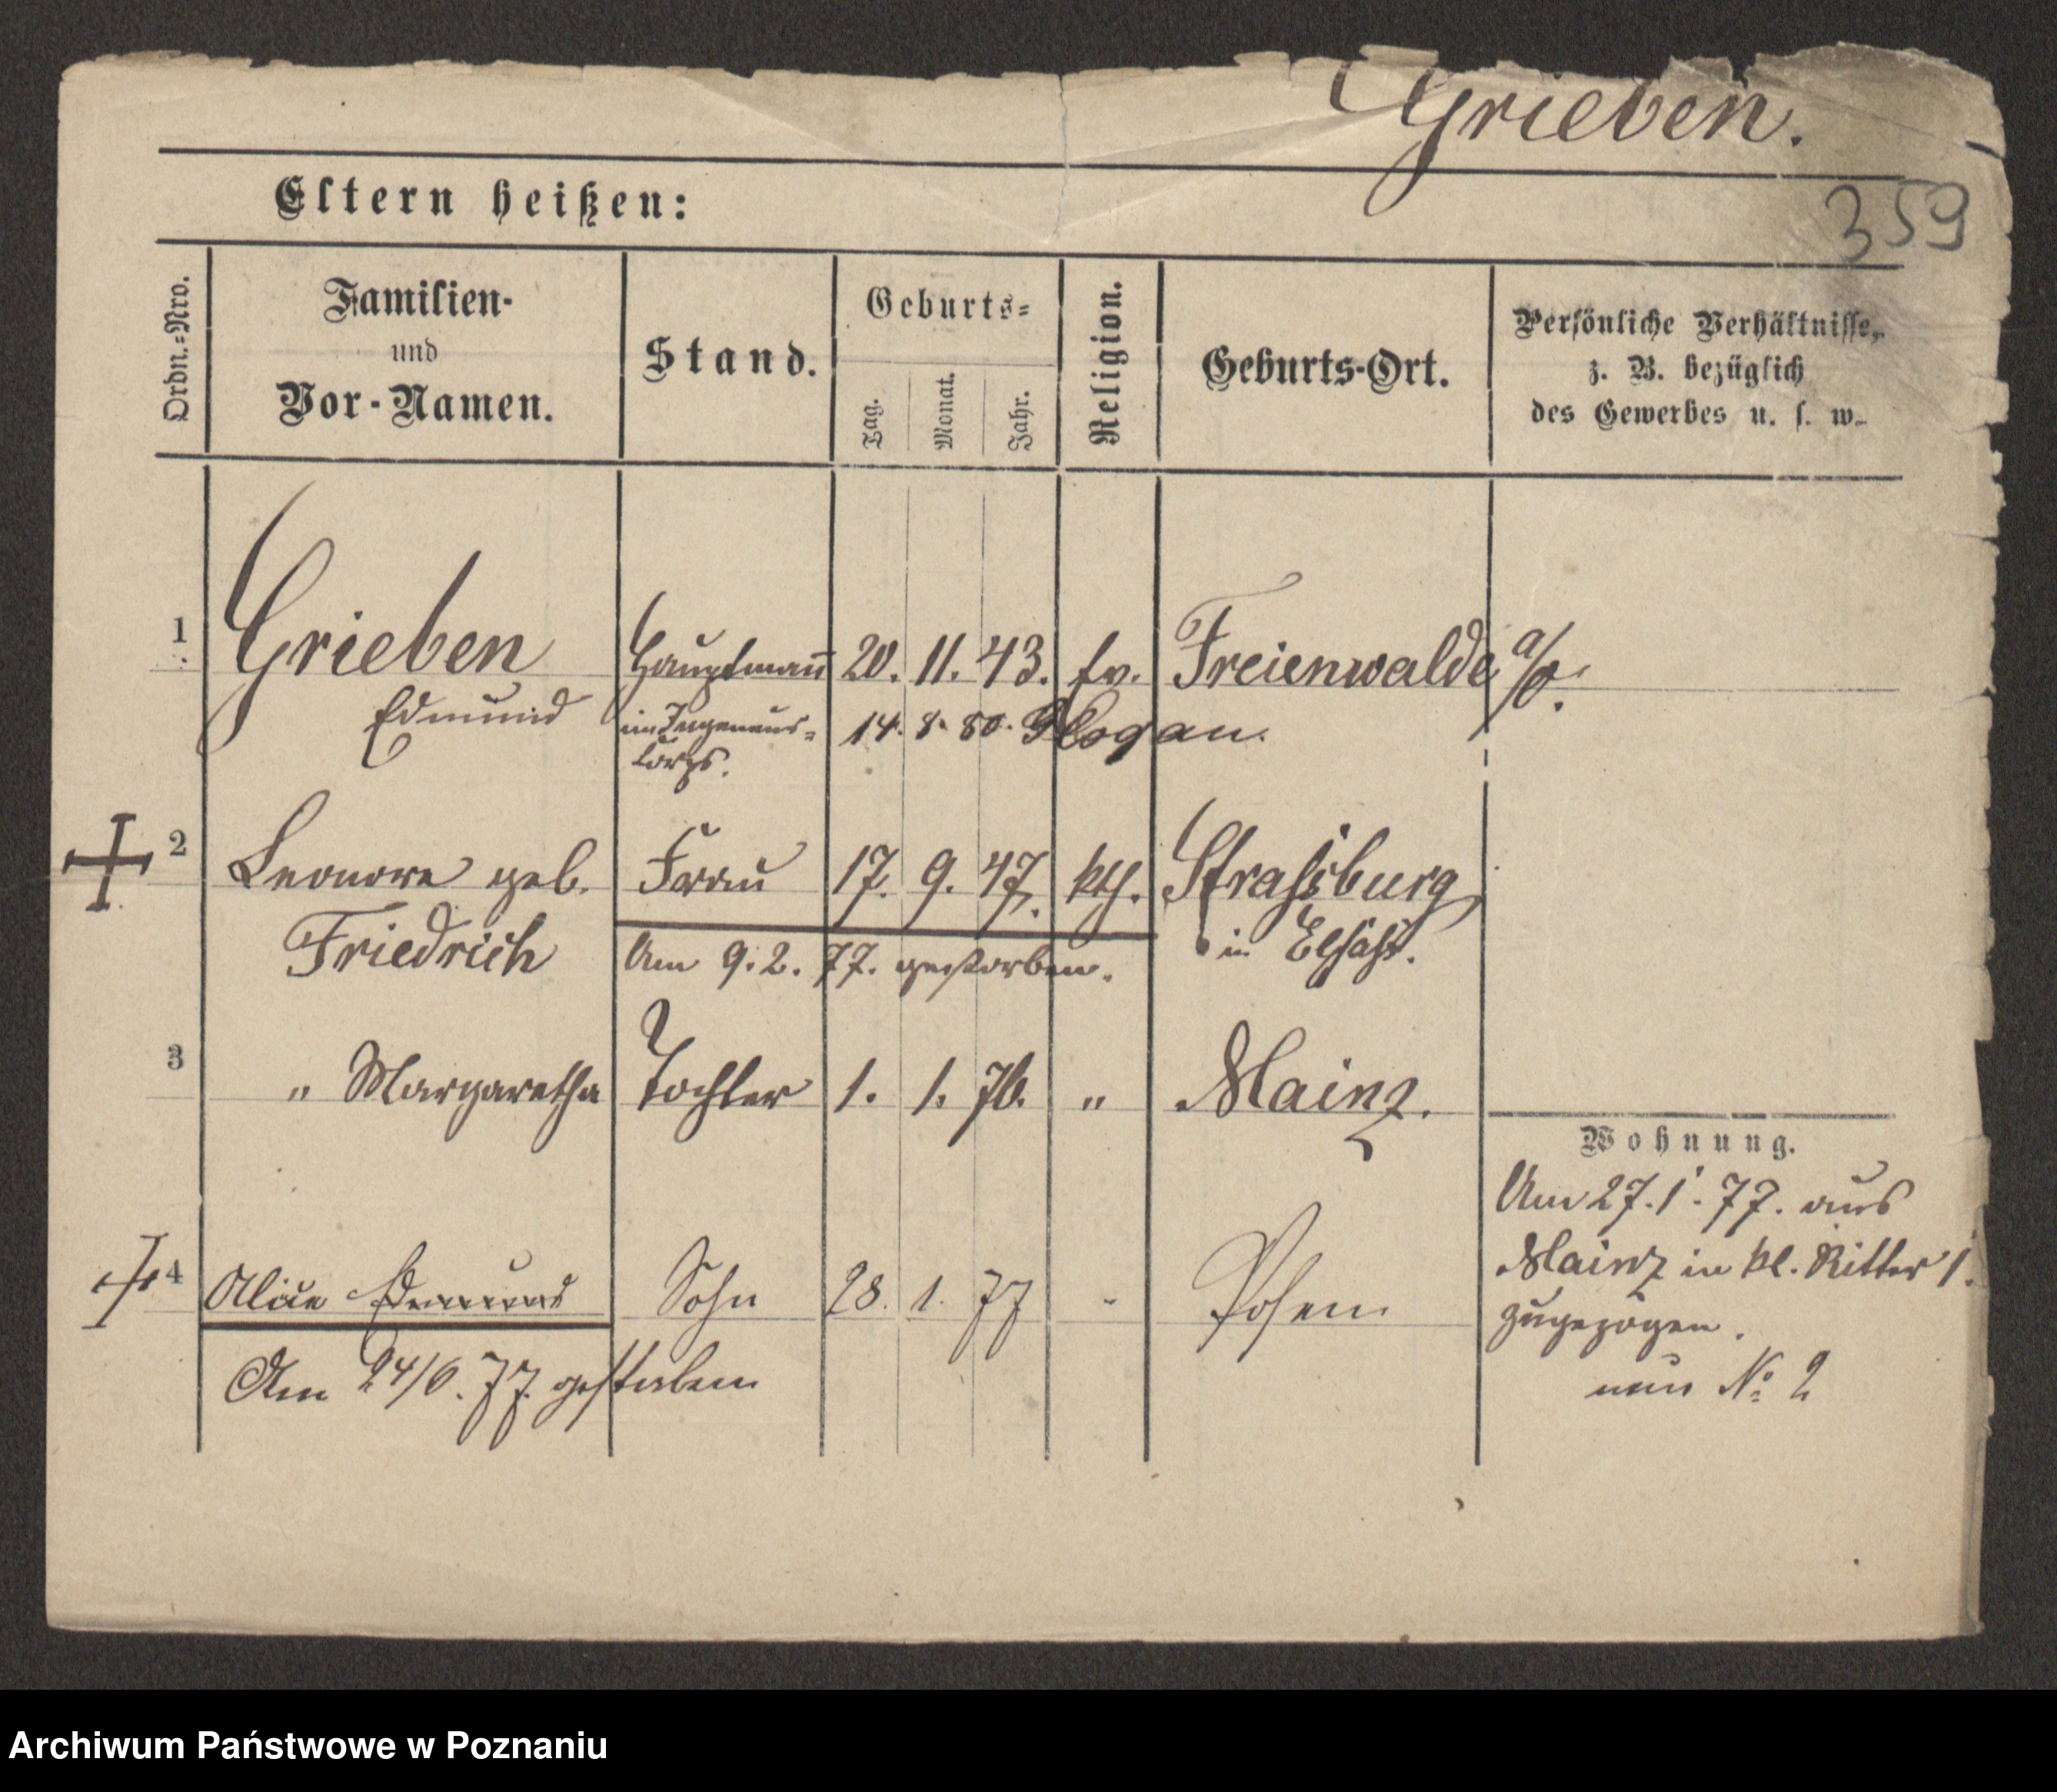 Grieben.
359
Eltern heißen:
Ordn.-Nro.
Familien-
und
Vor-Namen.
Stand.
Geburts-
Tag.
Monat.
Jahr.
Religion.
Geburts-Ort.
Persönliche Verhältnisse,
z. B. bezüglich
des Gewerbes u. s. w.
1 Grieben Hauptmann 20. 11. 43. ev. Freienwalde a/O.
Edmund im Ingenieur- 14. 8. 80. Glogau.
Corps.
2 Leonore geb. Frau 17. 9. 47. kth. Strassburg
Friedrich Am 9. 2. 77. gestorben. in Elsass.
3 " Margaretha Tochter 1. 1. 76. " Mainz.
Wohnung.
Am 27. 1. 77. aus
Mainz in kl. Ritter 1.
zugezogen.
nun No 2
4 Edmund Sohn 28. 1. 77 " Posen
Am 24/6. 77. gestorben
Archiwum Państwowe w Poznaniu